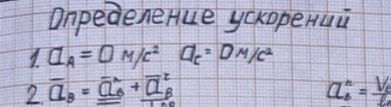 Определение ускорений
1. a_A = 0 м/с² a_C = 0 м/с²
2. a̅_B = a̅_B^n + a̅_B^τ a_B^n =